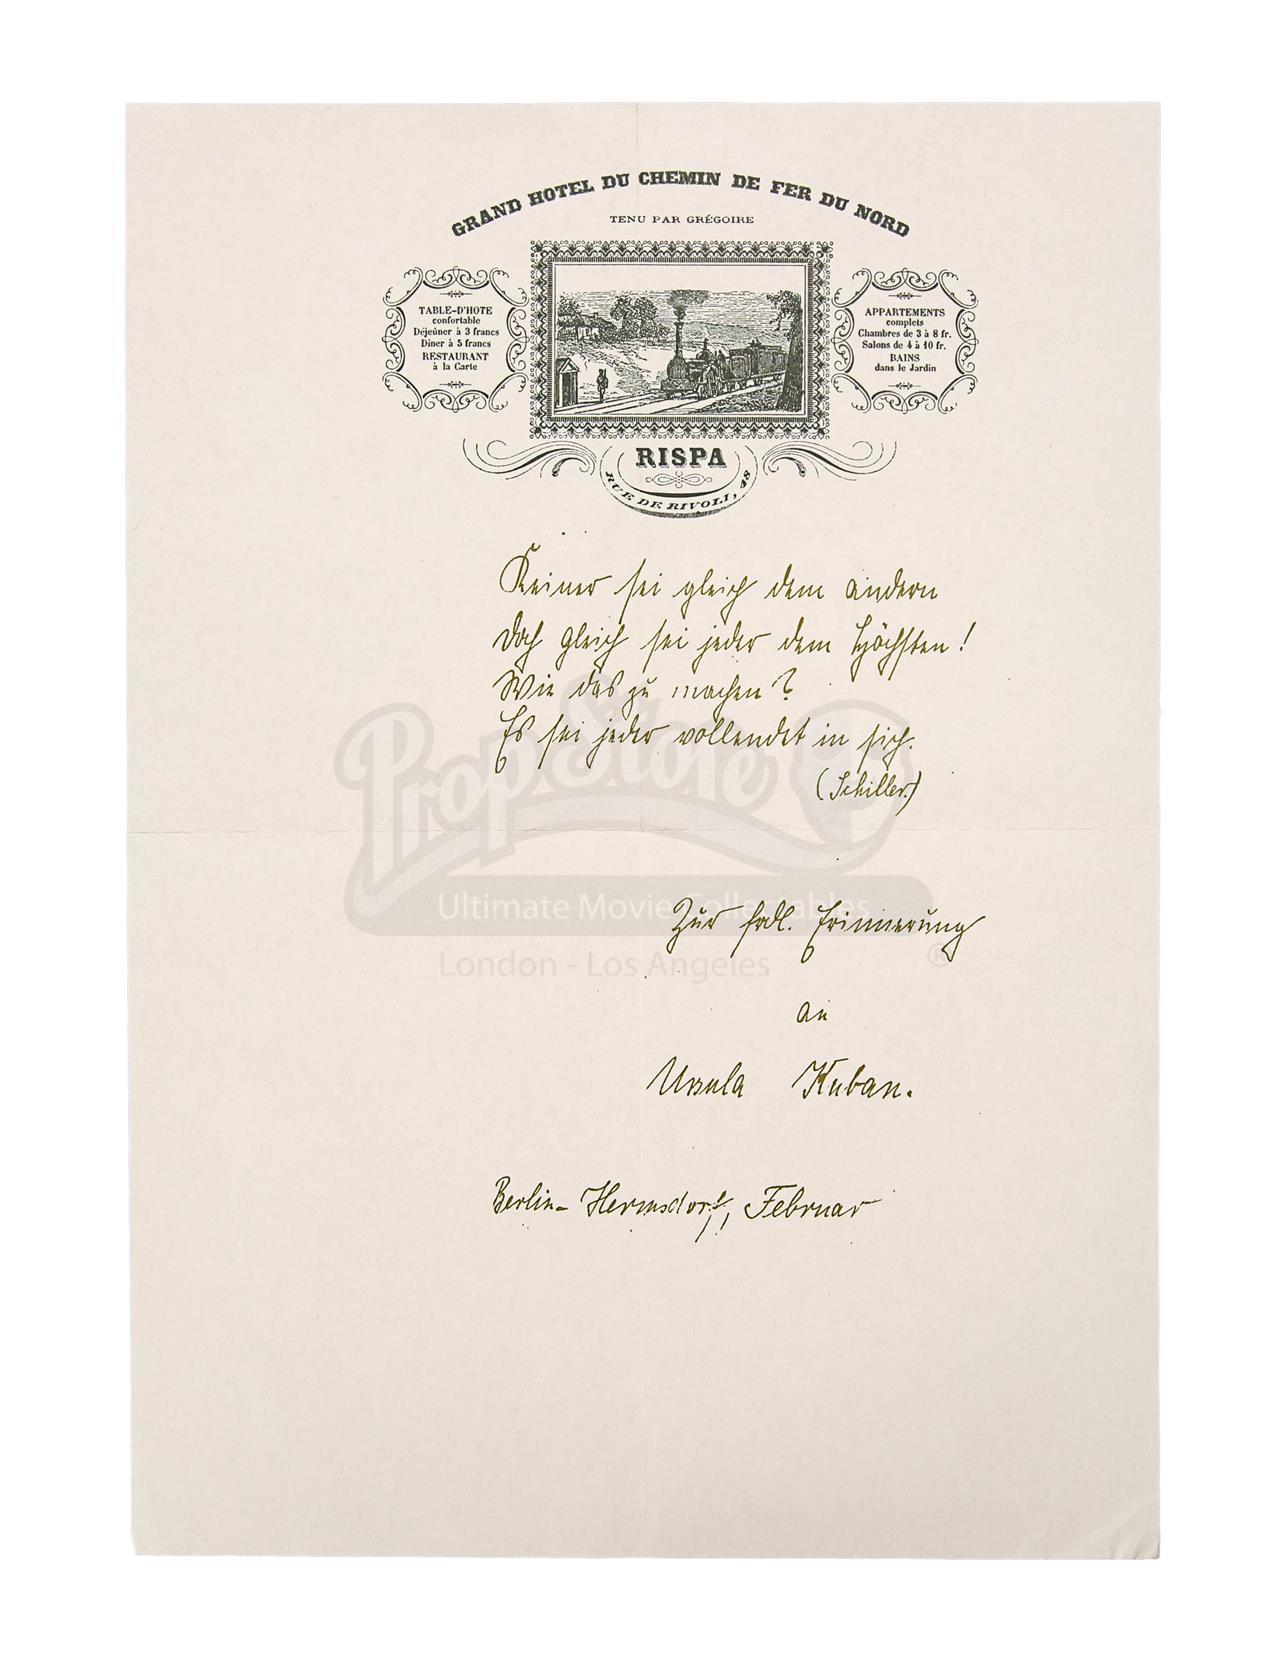 GRAND HOTEL DU CHEMIN DE FER DU NORD
TENU PAR GRÉGOIRE
TABLE-D'HOTE
confortable
Déjeûner à 3 francs
Diner à 5 francs
RESTAURANT
à la Carte
APPARTEMENTS
complets
Chambres de 3 à 8 fr.
Salons de 4 à 10 fr.
BAINS
dans le Jardin
RISPA
RUE DE RIVOLI, 48
Keiner sei gleich dem andern
doch gleich sei jeder dem Höchsten!
Wie das zu machen?
Es sei jeder vollendet in sich.
(Schiller.)
Zur frdl. Erinnerung
an
Ursula Kuban.
Berlin-Hermsdorf, Februar
PropStore
Ultimate Movie Collectables
London - Los Angeles
®